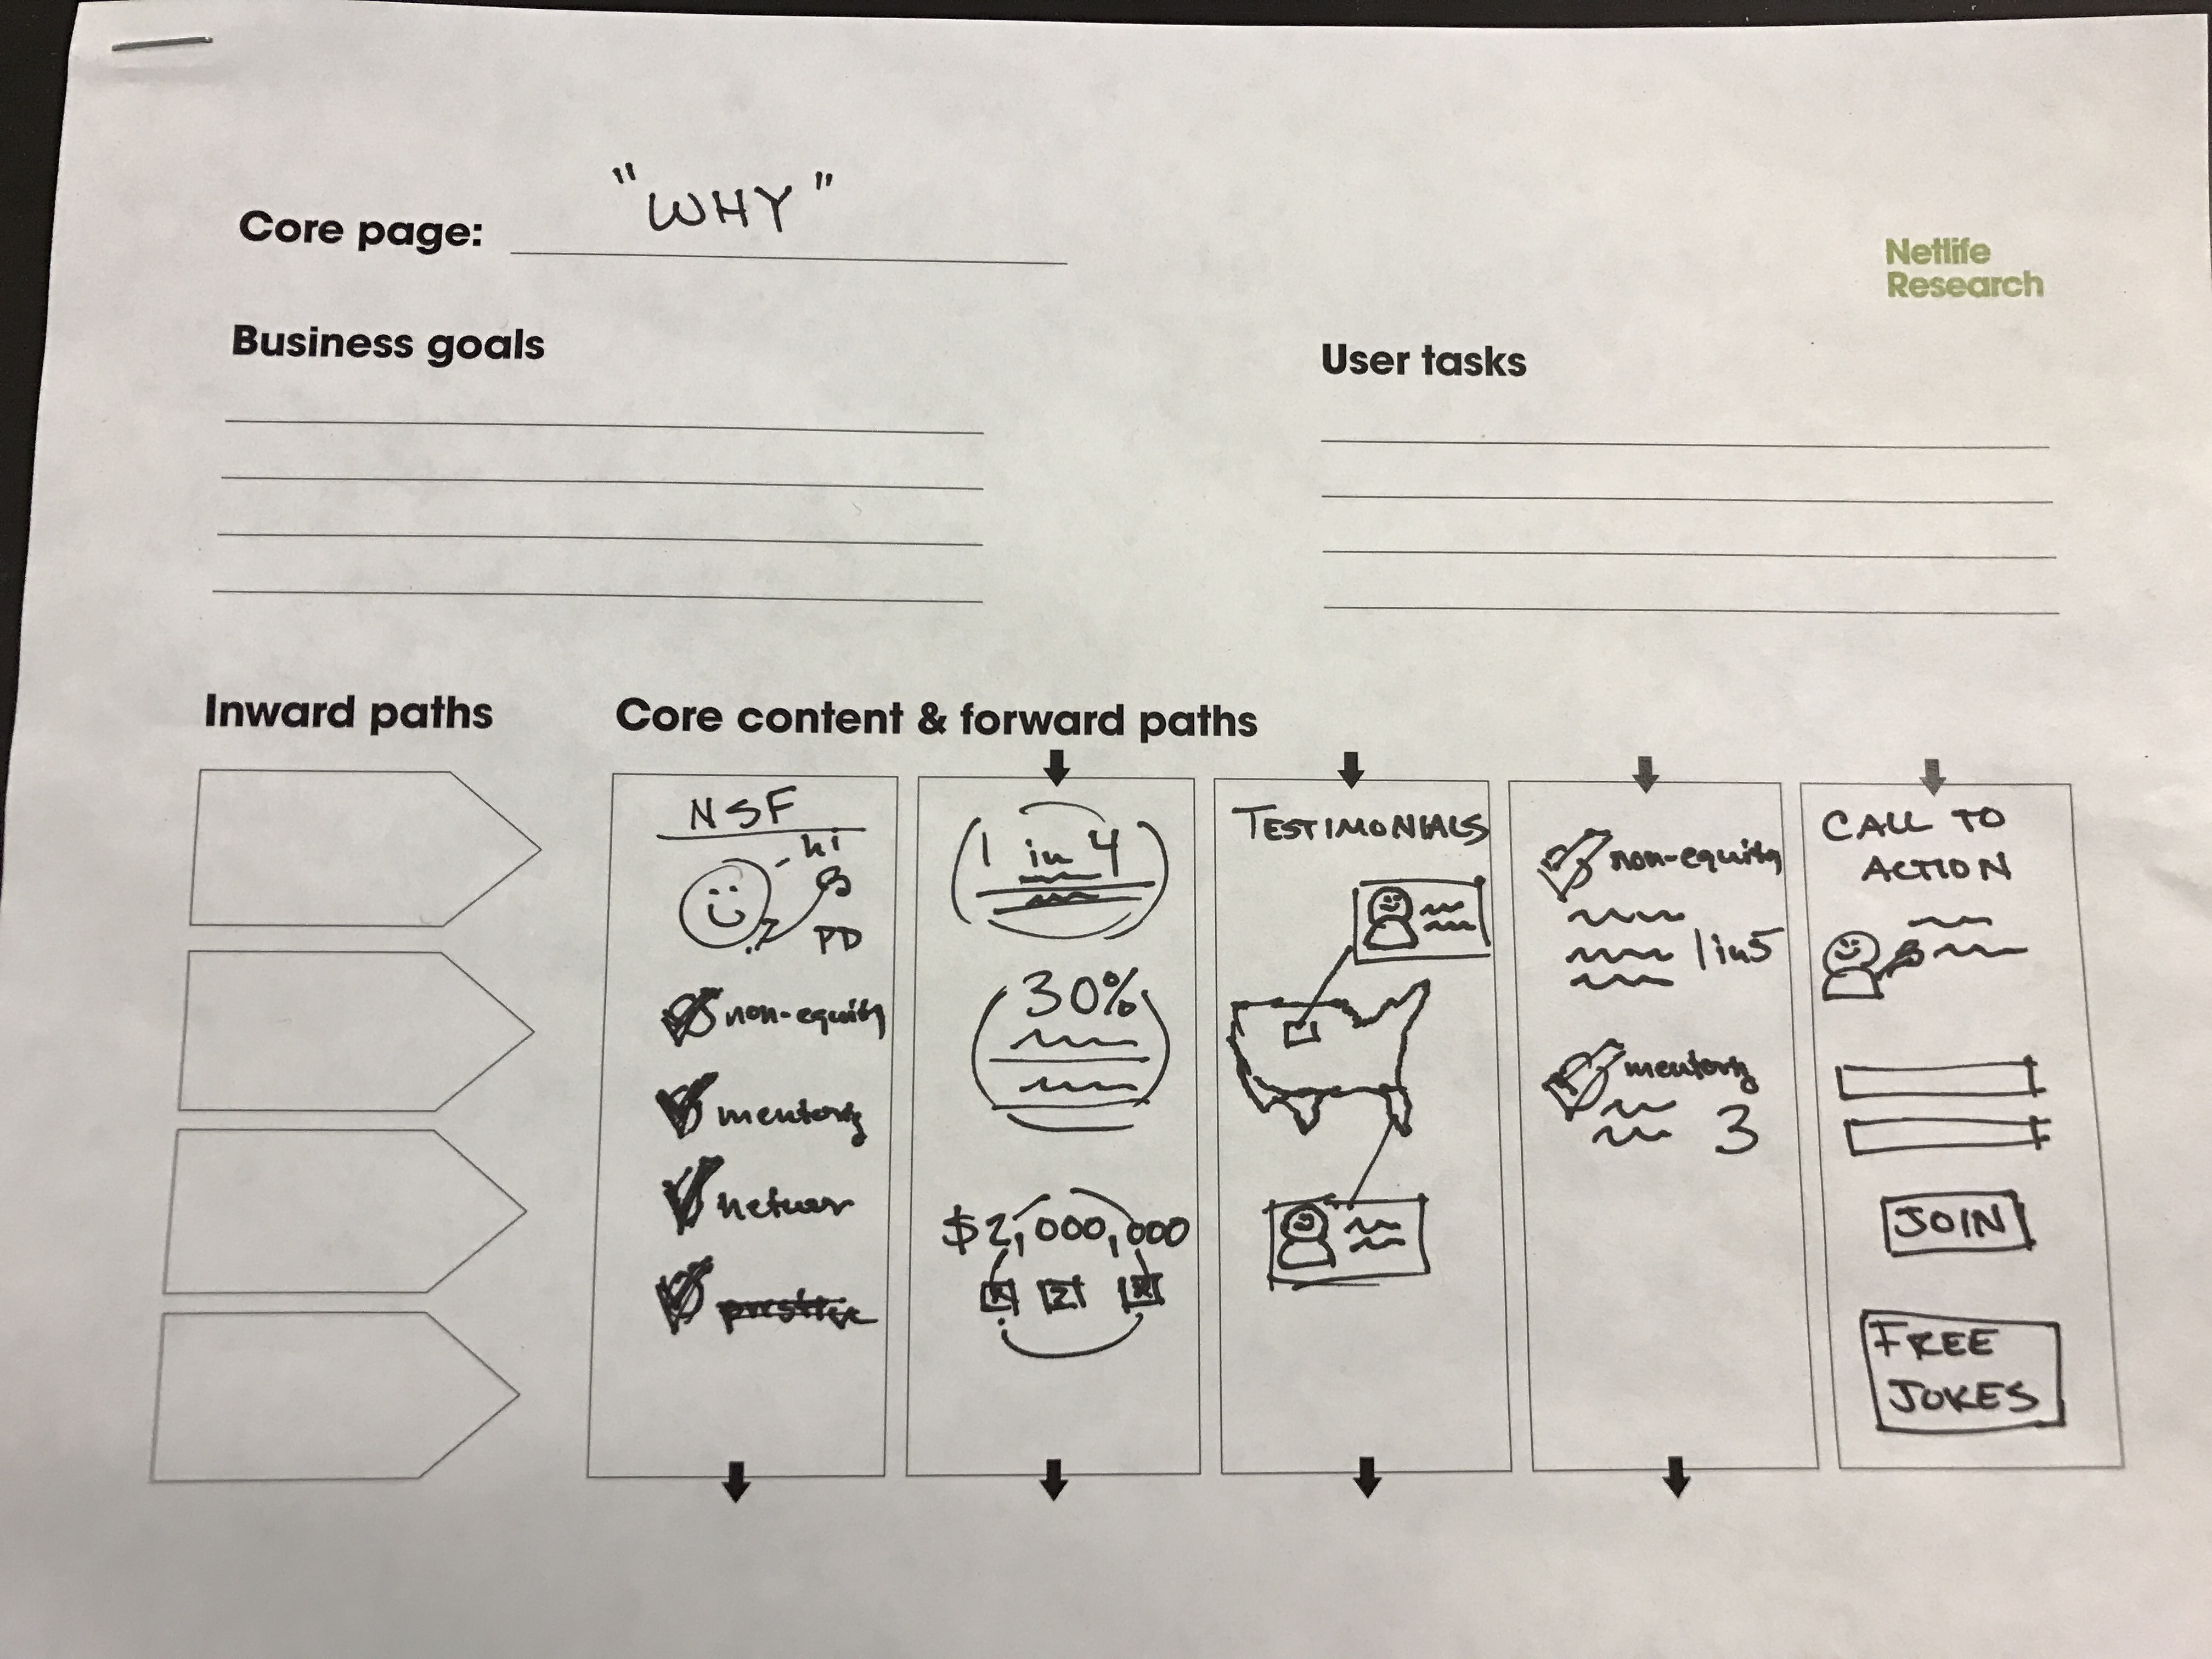 Core page: "WHY"
Netlife
Research
Business goals
User tasks
Inward paths
Core content & forward paths
NSF
hi
PD
non-equity
mentorg
networ
1 in 4
30%
$2,000,000
TESTIMONIALS
non-equity
1 in 5
mentorg
3
CALL TO
ACTION
JOIN
FREE
JOKES